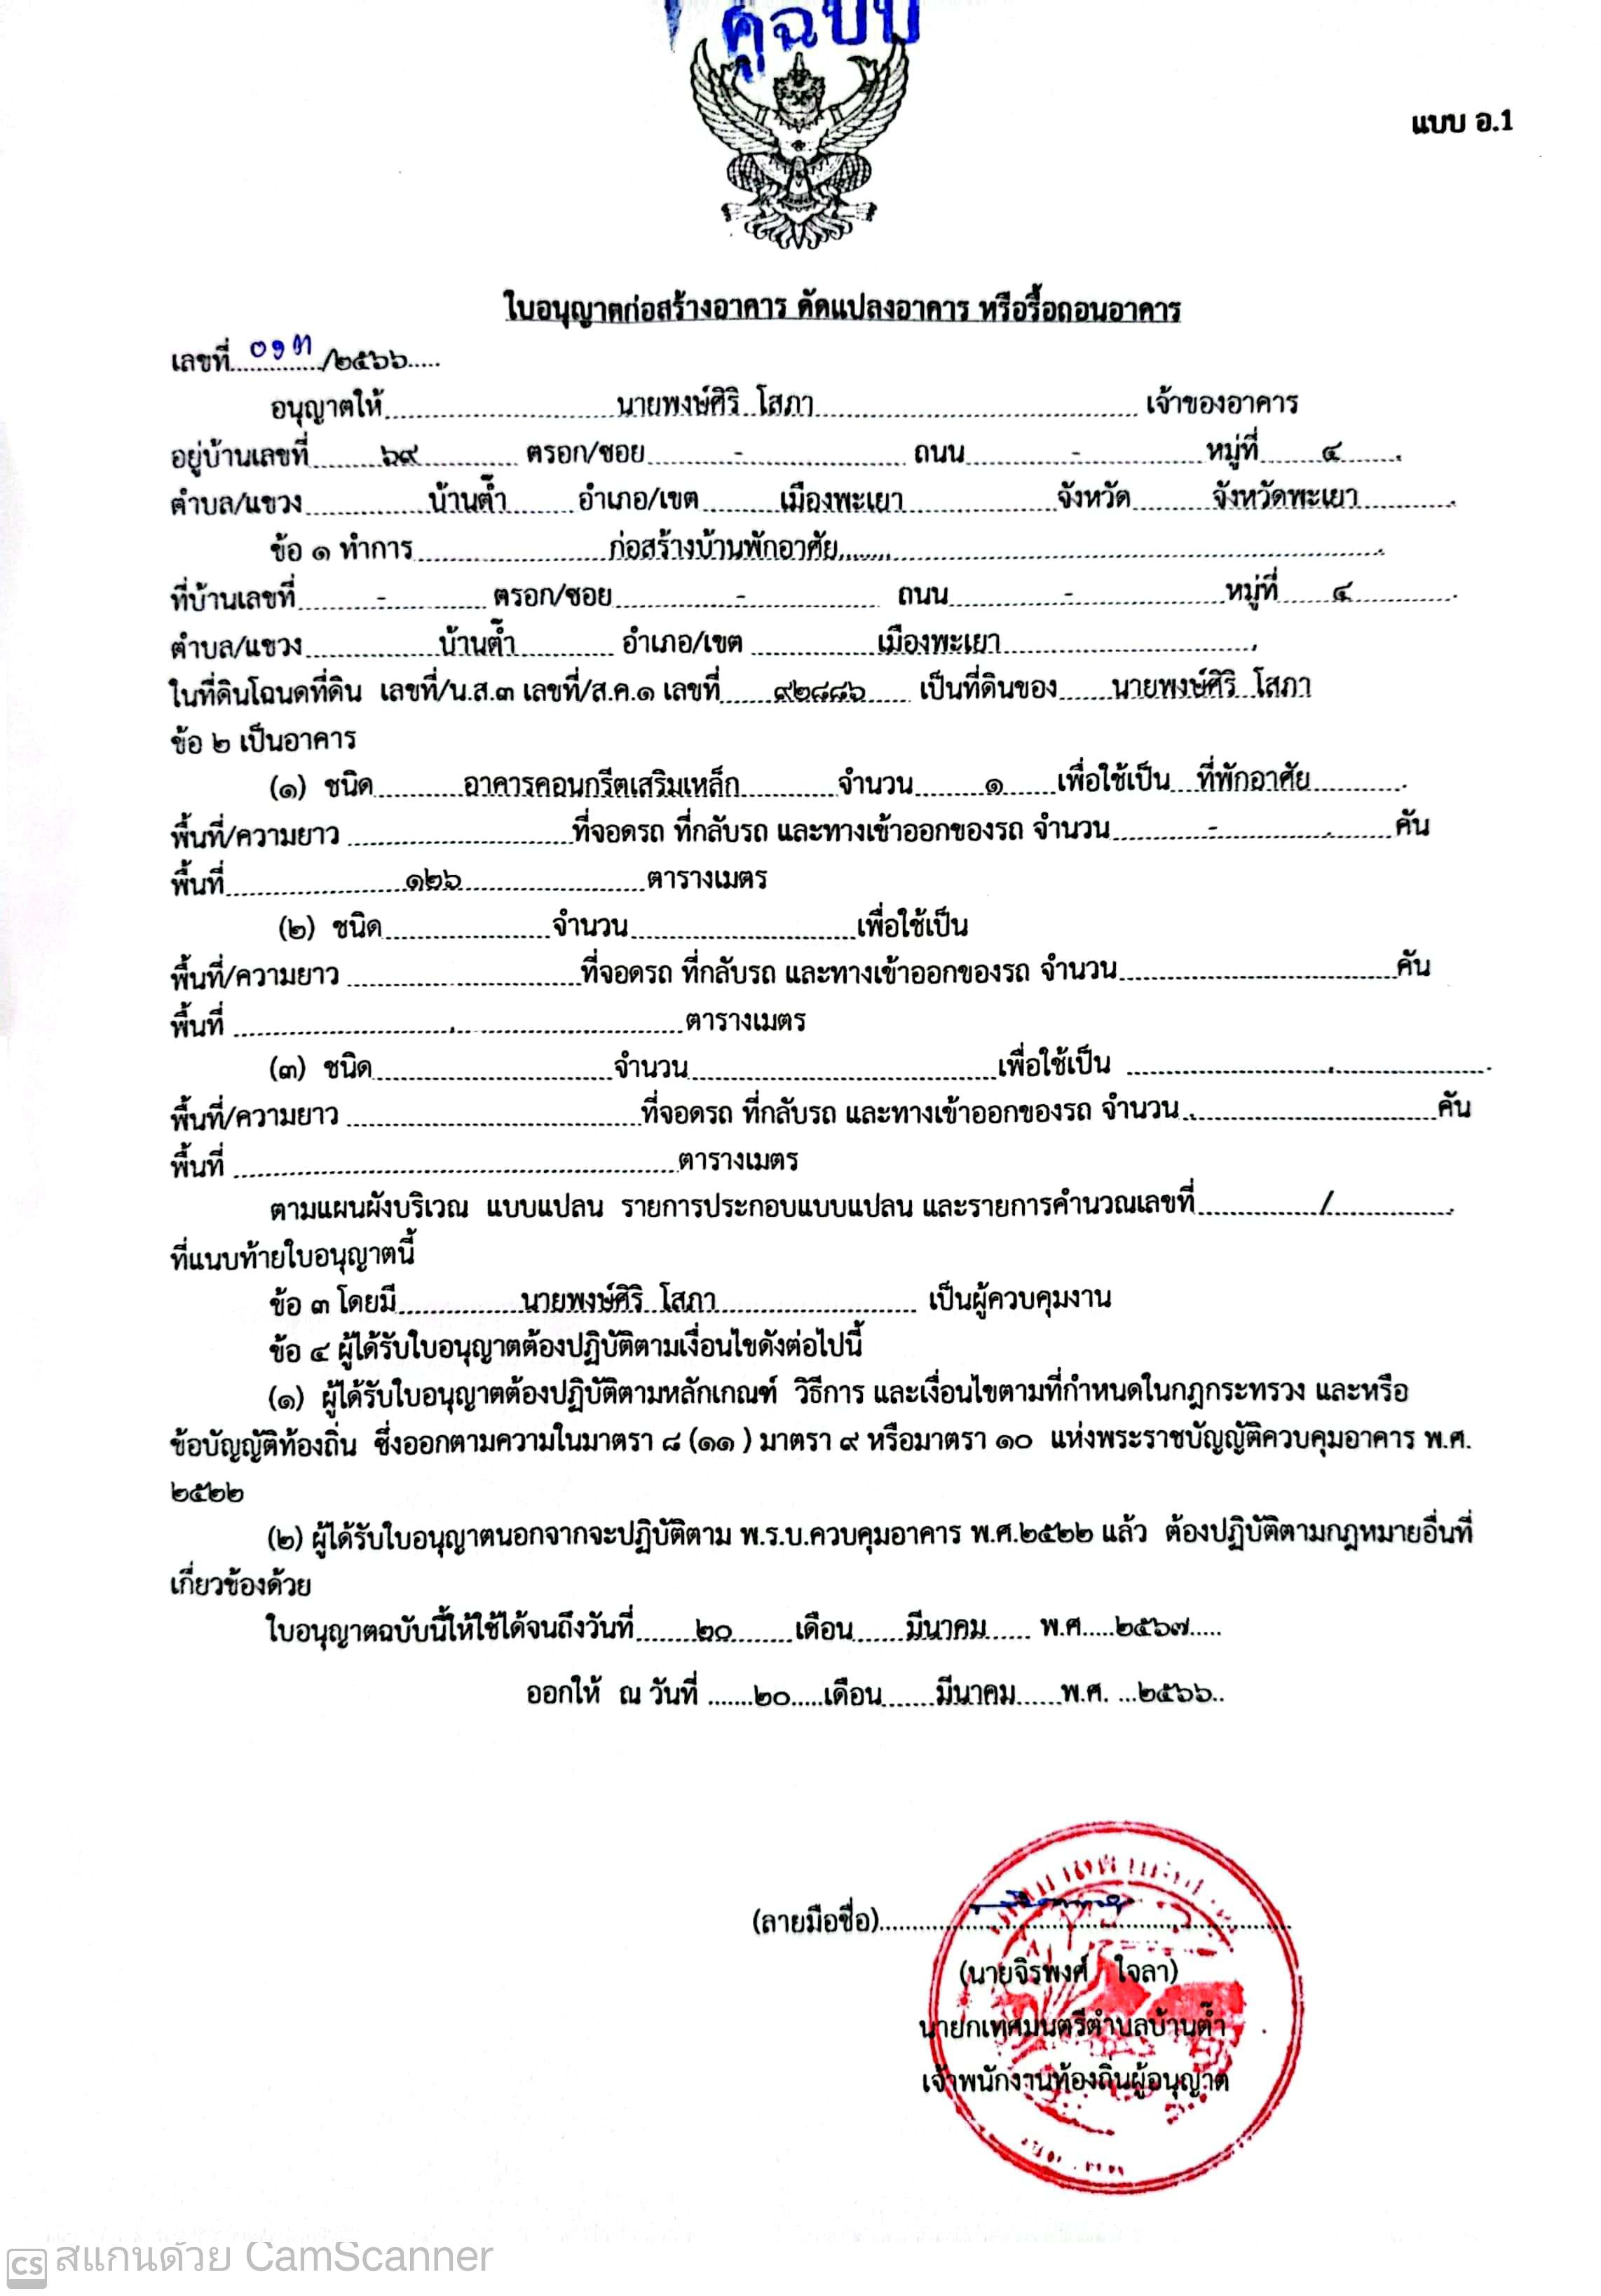 คู่ฉบับ
แบบ อ.1
ใบอนุญาตก่อสร้างอาคาร ดัดแปลงอาคาร หรือรื้อถอนอาคาร
เลขที่ ๐๑๓ /๒๕๖๖
อนุญาตให้ นายพงษ์ศิริ โสภา เจ้าของอาคาร
อยู่บ้านเลขที่ ๖๙ ตรอก/ซอย - ถนน - หมู่ที่ ๔
ตำบล/แขวง บ้านต๊ำ อำเภอ/เขต เมืองพะเยา จังหวัด จังหวัดพะเยา
ข้อ ๑ ทำการ ก่อสร้างบ้านพักอาศัย
ที่บ้านเลขที่ - ตรอก/ซอย - ถนน - หมู่ที่ ๔
ตำบล/แขวง บ้านต๊ำ อำเภอ/เขต เมืองพะเยา
ในที่ดินโฉนดที่ดิน เลขที่/น.ส.๓ เลขที่/ส.ค.๑ เลขที่ ๙๒๘๘๖ เป็นที่ดินของ นายพงษ์ศิริ โสภา
ข้อ ๒ เป็นอาคาร
(๑) ชนิด อาคารคอนกรีตเสริมเหล็ก จำนวน ๑ เพื่อใช้เป็น ที่พักอาศัย
พื้นที่/ความยาว ที่จอดรถ ที่กลับรถ และทางเข้าออกของรถ จำนวน - คัน
พื้นที่ ๑๒๖ ตารางเมตร
(๒) ชนิด จำนวน เพื่อใช้เป็น
พื้นที่/ความยาว ที่จอดรถ ที่กลับรถ และทางเข้าออกของรถ จำนวน คัน
พื้นที่ ตารางเมตร
(๓) ชนิด จำนวน เพื่อใช้เป็น
พื้นที่/ความยาว ที่จอดรถ ที่กลับรถ และทางเข้าออกของรถ จำนวน คัน
พื้นที่ ตารางเมตร
ตามแผนผังบริเวณ แบบแปลน รายการประกอบแบบแปลน และรายการคำนวณเลขที่ /
ที่แนบท้ายใบอนุญาตนี้
ข้อ ๓ โดยมี นายพงษ์ศิริ โสภา เป็นผู้ควบคุมงาน
ข้อ ๔ ผู้ได้รับใบอนุญาตต้องปฏิบัติตามเงื่อนไขดังต่อไปนี้
(๑) ผู้ได้รับใบอนุญาตต้องปฏิบัติตามหลักเกณฑ์ วิธีการ และเงื่อนไขตามที่กำหนดในกฎกระทรวง และหรือ
ข้อบัญญัติท้องถิ่น ซึ่งออกตามความในมาตรา ๘ (๑๑ ) มาตรา ๙ หรือมาตรา ๑๐ แห่งพระราชบัญญัติควบคุมอาคาร พ.ศ.
๒๕๒๒
(๒) ผู้ได้รับใบอนุญาตนอกจากจะปฏิบัติตาม พ.ร.บ.ควบคุมอาคาร พ.ศ.๒๕๒๒ แล้ว ต้องปฏิบัติตามกฎหมายอื่นที่
เกี่ยวข้องด้วย
ใบอนุญาตฉบับนี้ให้ใช้ได้จนถึงวันที่ ๒๐ เดือน มีนาคม พ.ศ. ๒๕๖๗
ออกให้ ณ วันที่ ๒๐ เดือน มีนาคม พ.ศ. ๒๕๖๖
(ลายมือชื่อ)
(นายจิรพงศ์ ใจลา)
นายกเทศมนตรีตำบลบ้านต๊ำ
เจ้าพนักงานท้องถิ่นผู้อนุญาต
CS สแกนด้วย CamScanner